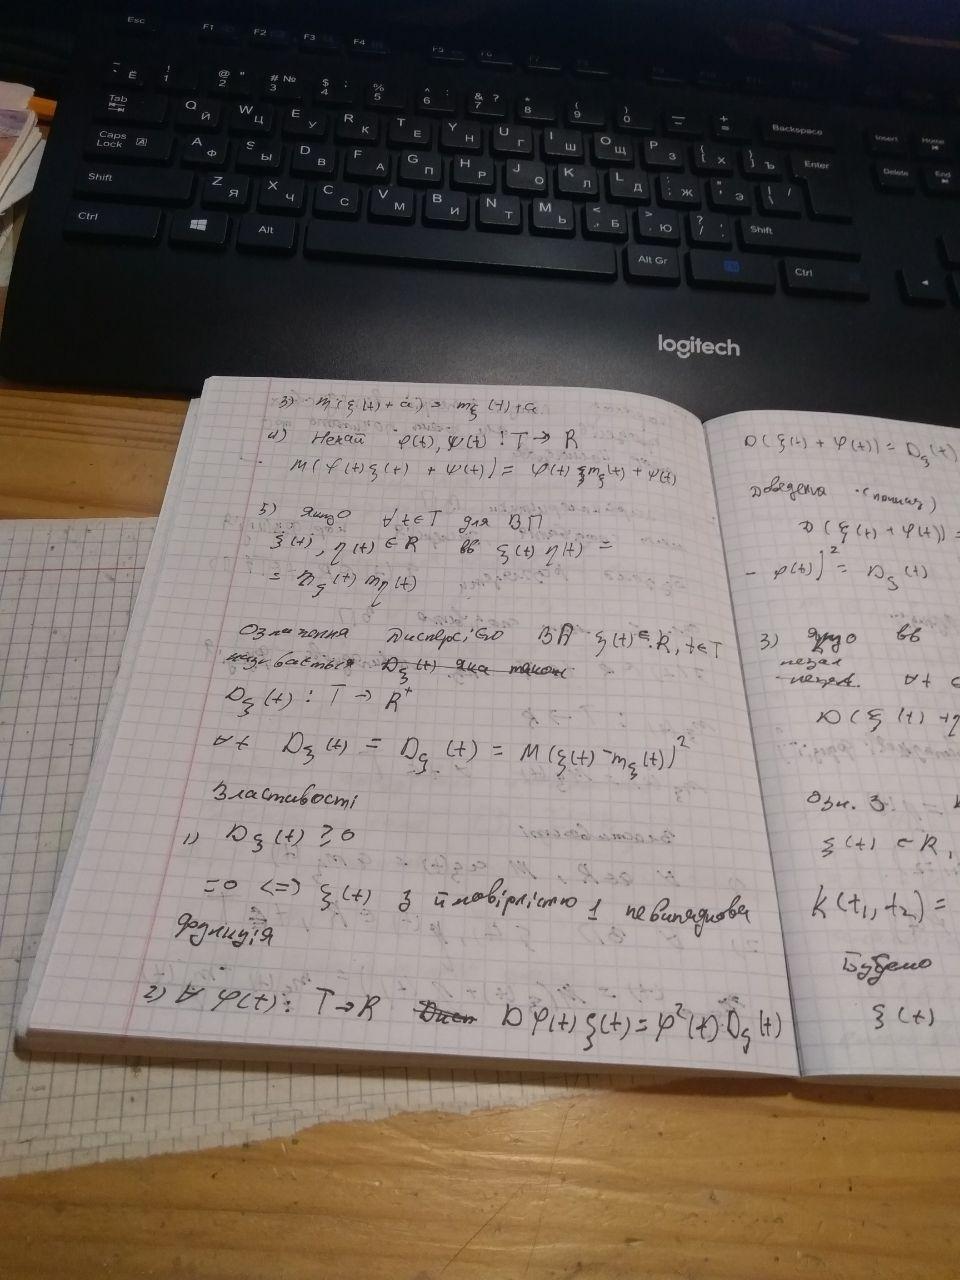 Esc F1 F2 F3 F4 F5 F6 F7
~ Ё ! 1 @ " 2 # № 3 $ ; 4 % 5 ^ : 6 & ? 7 * 8 ( 9 ) 0 — + = Backspace Insert Home
Tab Q Й W Ц E У R К T Е Y Н U Г I Ш O Щ P З { [ Х } ] Ъ Enter Delete End
Caps Lock A Ф S Ы D В F А G П H Р J О K Л L Д : ; Ж " ' Э | \ /
Shift Z Я X Ч C С V М B И N Т M Ь < , Б > . Ю ? / Shift
Ctrl Alt Alt Gr Ctrl
logitech
3) M(ξ(t) + a) = mξ(t) + a
4) Нехай φ(t), ψ(t) : T → R
M(φ(t)ξ(t) + ψ(t)) = φ(t) mξ(t) + ψ(t)
5) якщо ∀t∈T для ВП
ξ(t), η(t) ∈ R ξ(t) η(t) =
= mξ(t) mη(t)
Означення Дисперсією ВП ξ(t) ∈ R, t∈T
називається Dξ(t) яка
Dξ(t) : T → R⁺
∀t Dξ(t) = Dξ(t) = M(ξ(t) - mξ(t))²
Властивості
1) Dξ(t) ≥ 0
= 0 <=> ξ(t) з ймовірністю 1 невипадкова
функція
2) ∀ φ(t) : T → R D φ(t) ξ(t) = φ²(t) Dξ(t)
D(ξ(t) + φ(t)) = Dξ(t)
Доведення
D(ξ(t) + φ(t)) =
- φ(t))² = Dξ(t)
3) якщо вв
незал
∀t ∈
D(ξ(t) + η
Озн. 3:
ξ(t) ∈ R,
K(t₁, t₂) =
Будемо
ξ(t)